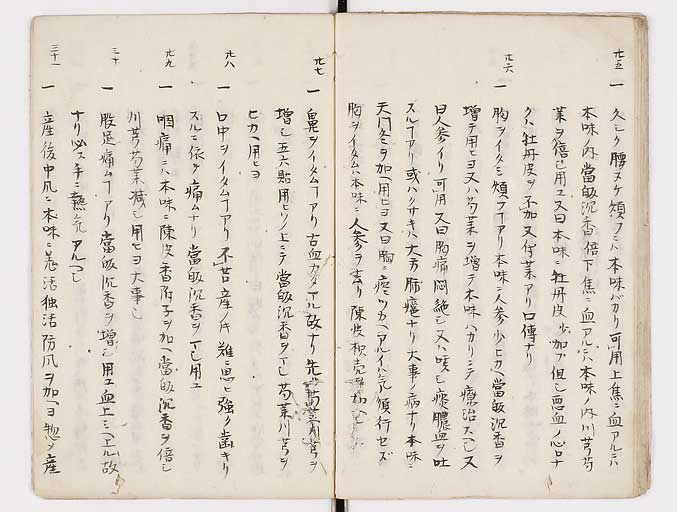 廿五 一 久シク腰ヌケ煩フニハ本味バカリ可用上焦ニ血アルニハ
本味ノ内當皈沉香倍下焦ニ血アルニハ本味ノ内川芎芍
薬ヲ倍已用エ又曰本味ニ牡丹皮少加フ但シ悪血ノ心ロナ
クハ牡丹皮ヲ不加又代薬アリ口傳ナリ
廿六 一 胸ヲイタミ煩フアリ本味ニ人参少ヒカヘ當皈沉香ヲ
増テ用ヒヨ又ハ芍薬ヲ増テ本味ハカリニテ療治スヘシ又
曰人参イリ可用又曰胸痛悶絶シ又ハ咳シ痰膿血ヲ吐
スルアリ或ハクサキハ大方肺癰ナリ大事ノ病ナリ本味ニ
天門冬ヲ加ヘ用ヒヨ又曰胸ニ痞ツカヘアルイハ気順行セズ
胸ヲイタムハ本味ニ人参ヲ去リ陳皮枳壳ヲ加ヘヨ
廿七 一 鼻ヲイタムアリ古血カタマル故ナリ先ハ芍薬川芎ヲ
増シ五六貼用ヒソノ上ニテ當皈沉香ヲマシ芍薬川芎ヲ
ヒカヘ用ヒヨ
廿八 一 口中ヲイタムアリ不苦産ノ時難ニ思ヒ強ク歯キリ
スルニ依テ痛ムナリ當皈沉香ヲマシ用エ
廿九 一 咽痛ニハ本味ニ陳皮香附子ヲ加ヘ當皈沉香ヲ倍シ
川芎芍薬減シ用ヒヨ大事シ
三十 一 股足痛ムアリ當皈沉香ヲ増シ用エ血上ニアル故
ナリ必ス手ニ熱気アルヘシ
三十一 一 産後中風ニ本味ニ羌活独活防風ヲ加ヘヨ惣メ産